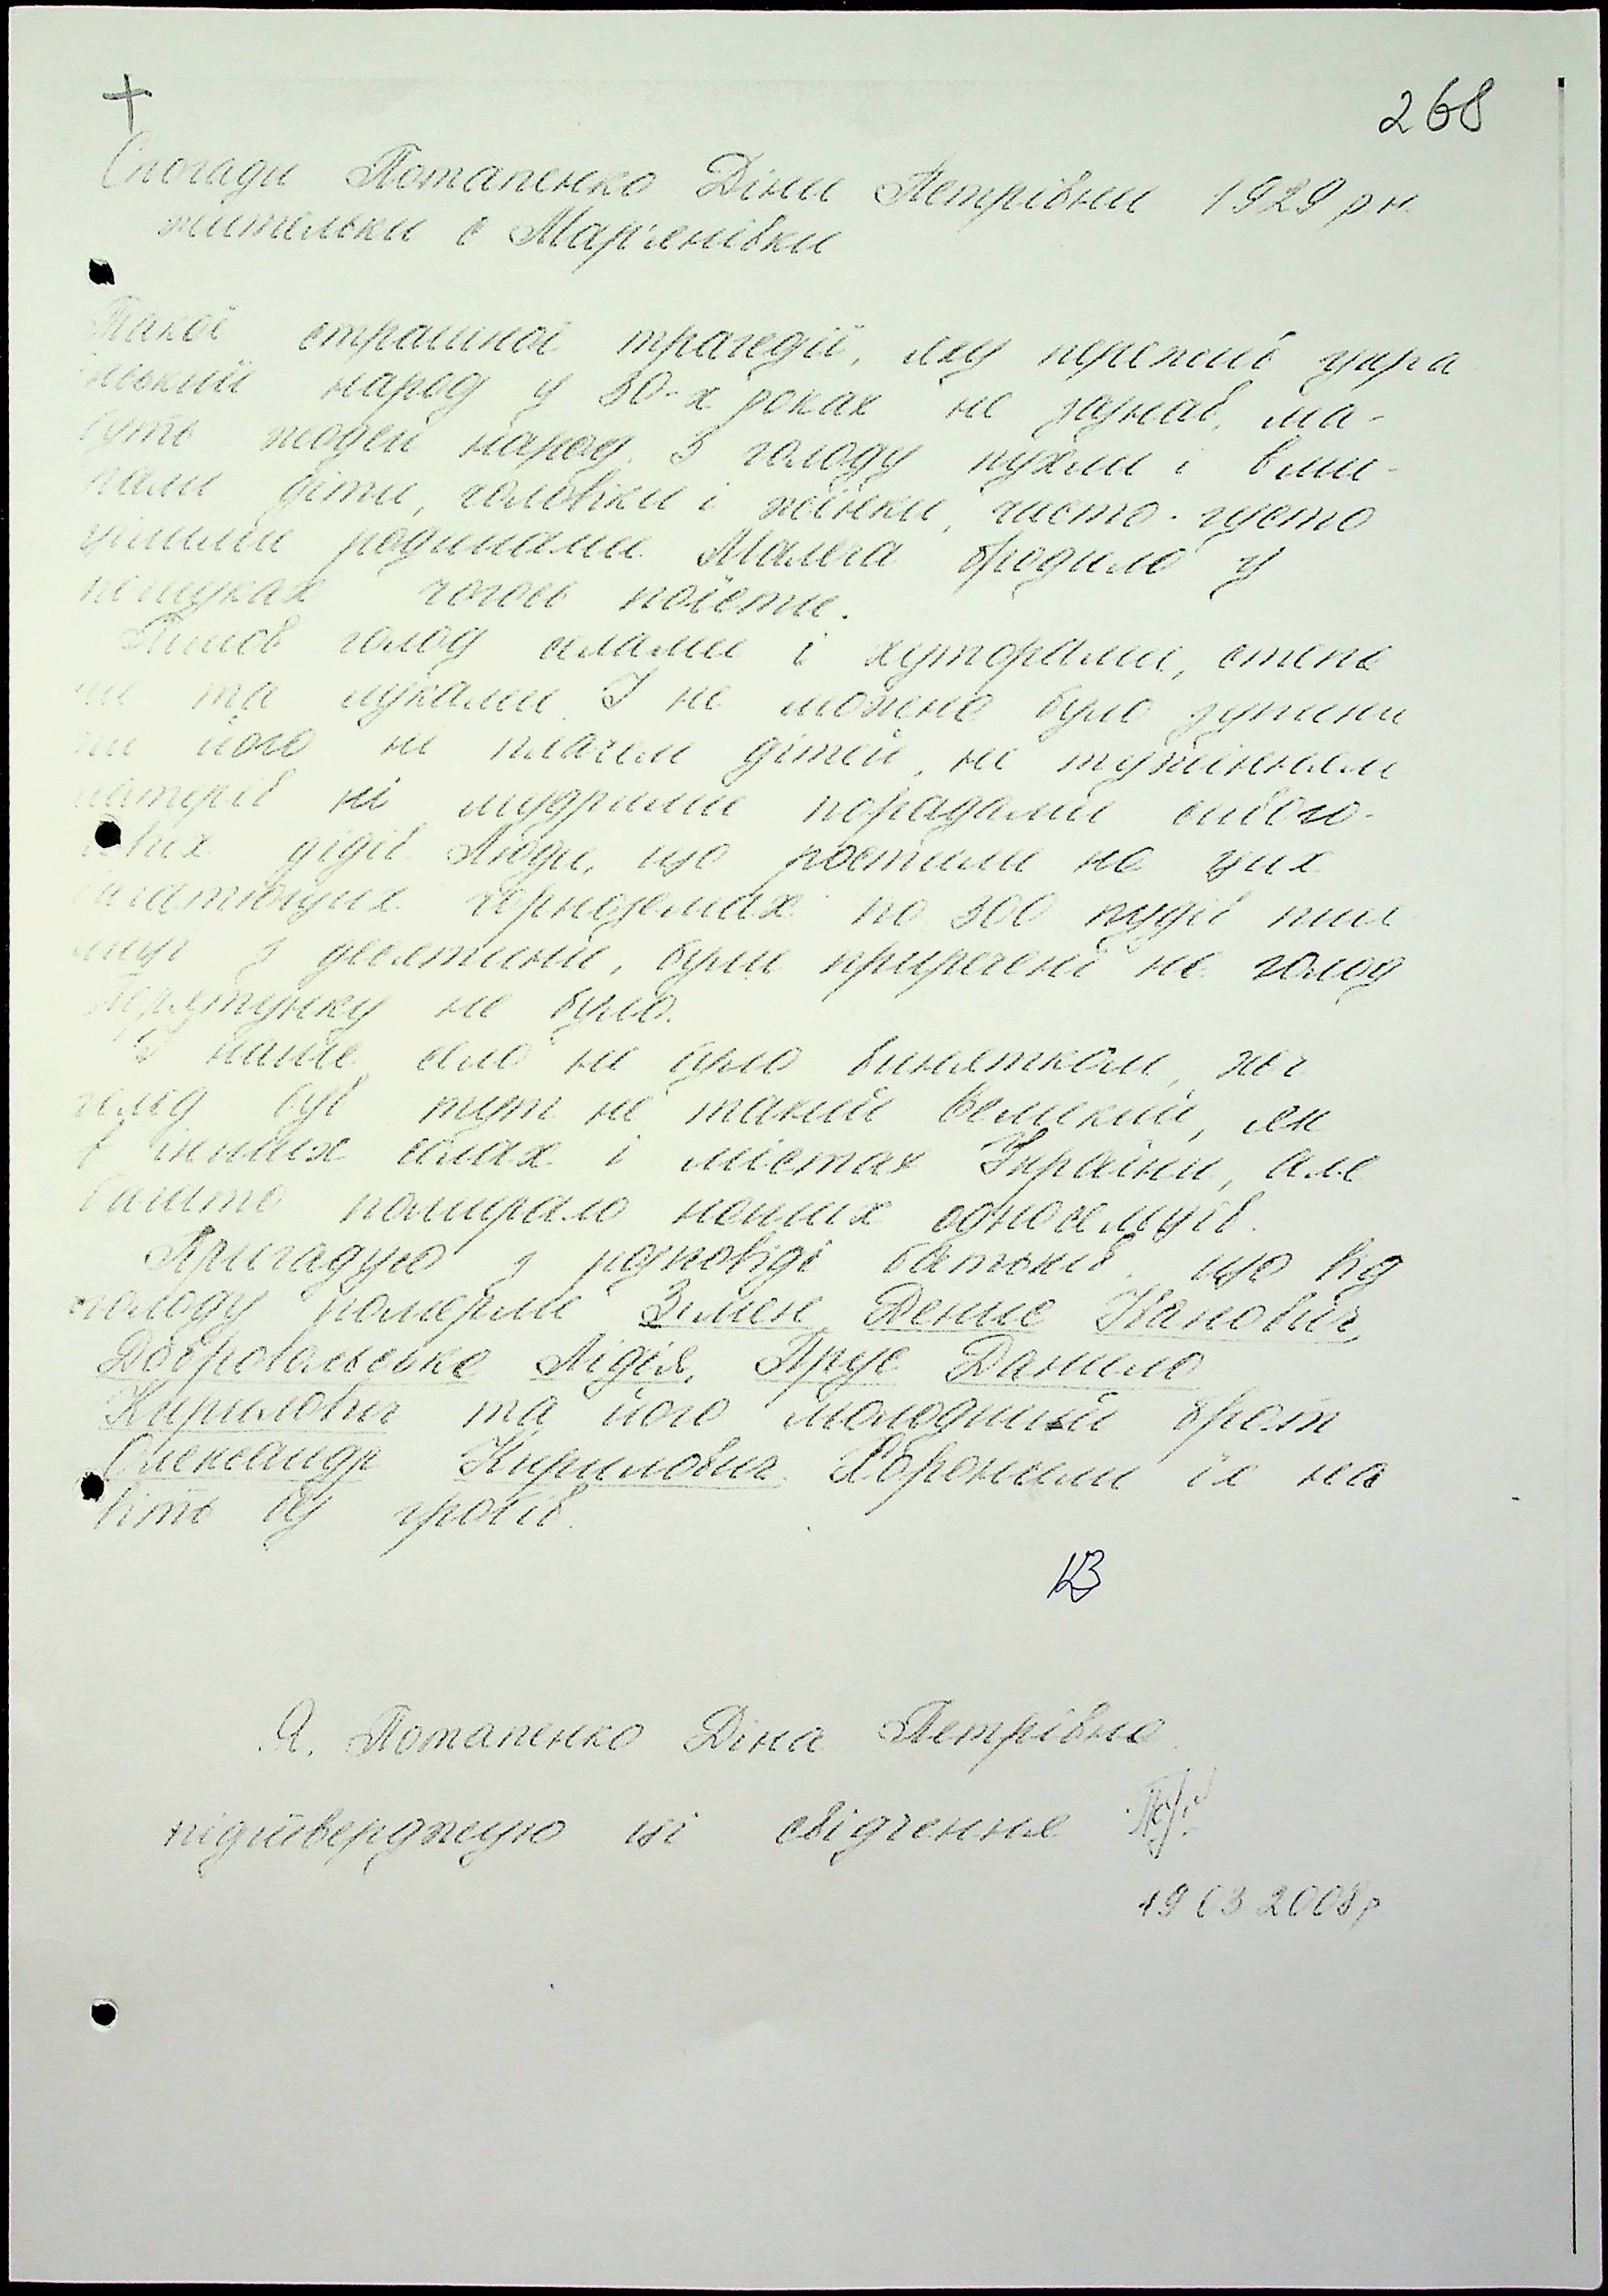 268
Спогади Потапенко Діни Петрівни 1929 р н.
жительки с Мар'янівки
Такої страшної трагедії, яку пережив укра
їнський народ у 30-х роках не зазнав, ма-
буть жоден народ. З голоду пухли і вми-
рали діти, чоловіки і жінки, часто-густо
цілими родинами. Малеча бродила у
пошуках чогось поїсти.
Пішов голод селами і хуторами, степа
ми та луками. І не можна було зупини
ти його ні плачем дітей, ні тужінням
матерів ні мудрими порадами сивого-
лових дідів. Люди, що ростили на цих
багатющих чорноземах по 300 пудів пше
ниці з десятини, були приречені на голод
Порятунку не було.
І наше село не було винятком, хоч
голод був тут не такий великий, як
в інших селах і містах України, але
багато помирало наших односельців.
Пригадую з розповіді батьків, що від
голоду померли Зимен Денис Іванович,
Добровольська Лідія, Прус Данило
Кирилович та його молодший брат
Олександр Кирилович. Хоронили їх на
віть без гробів.
Я. Потапенко Діна Петрівна
підтверджую ці свідчення
19 03 2008р